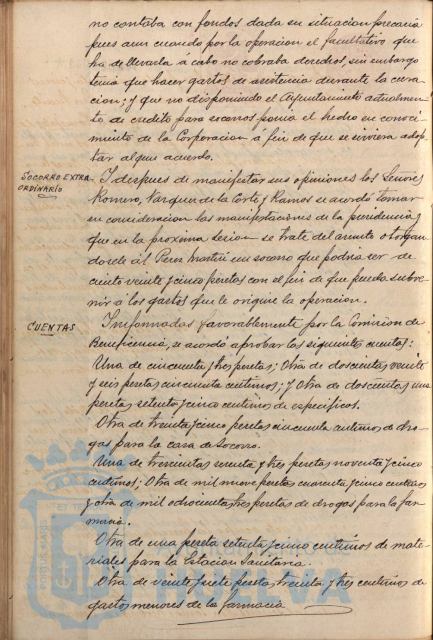 no contaba con fondos dada su situacion precaria
pues aun cuando por la operacion el facultativo que
ha de llevarla á cabo no cobraba derechos, sin embargo
tenia que hacer gastos de asistencia durante la cura-
cion; y que no disponiendo el Ayuntamiento actualmen-
te de credito para socorros ponia el hecho en conoci-
miento de la Corporacion á fin de que se sirviera adop-
tar algun acuerdo.
SOCORRO EXTRA-
ORDINARIO
Y despues de manifestar sus opiniones los Señores
Romero, Vazquez de la Corte y Ramos se acordó tomar
en consideracion las manifestaciones de la presidencia y
que en la proxima sesion se trate del asunto otorgan-
dosele á Perez Martin un socorro que podria ser de
ciento veinte y cinco pesetas con el fin de que pueda subve-
nir á los gastos que le origine la operacion.
CUENTAS
Informadas favorablemente por la Comision de
Beneficencia, se acordó aprobar las siguientes cuentas:
Una de cincuenta y tres pesetas; Otra de doscientas veinte
y seis pesetas cincuenta centimos; y Otra de doscientas una
pesetas setenta y cinco centimos de especificos.
Otra de treinta y cinco pesetas cincuenta centimos de dro-
gas para la casa de Socorro.
Una de trescientas sesenta y tres pesetas noventa y cinco
centimos; Otra de mil nueve pesetas cuarenta y cinco centimos
y otra de mil ochocientas tres pesetas de drogas para la far-
macia.
Otra de una peseta setenta y cinco centimos de mate-
riales para la Estacion Sanitaria.
Otra de veinte y siete pesetas treinta y tres centimos de
gastos menores de la farmacia
HUELVA